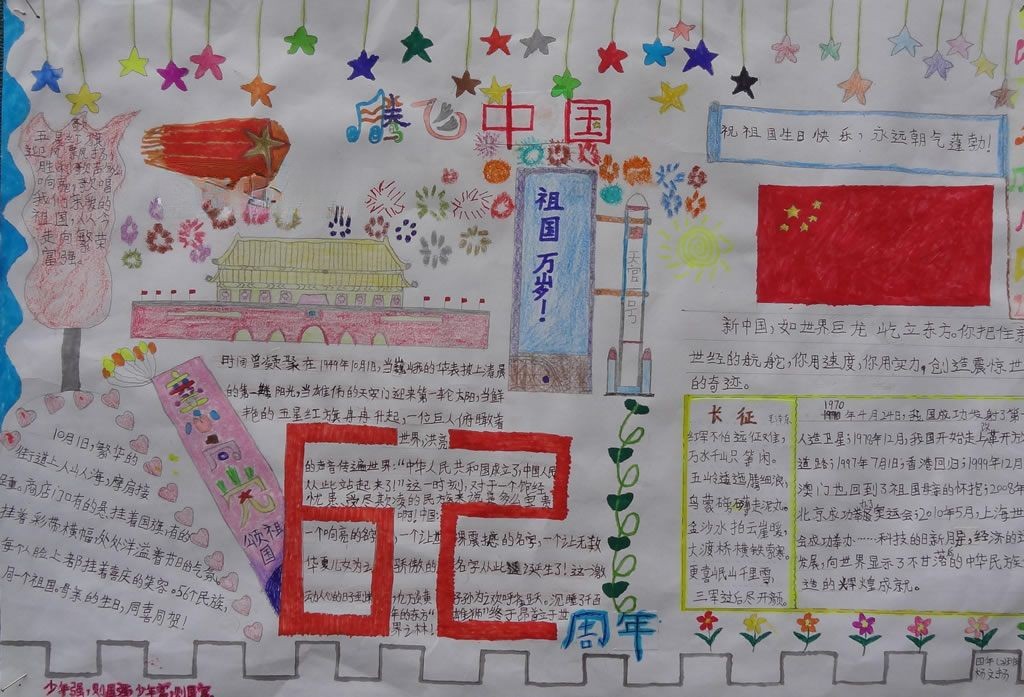 腾飞中国
祝祖国生日快乐；永远朝气蓬勃！
五星红旗
迎风飘扬，
胜利歌声
响亮，歌唱
我们亲爱的
祖国，从今
走向繁荣
富强。
祖国万岁！
天宫一号
新中国，如世界巨龙屹立东方。你把住
世纪的航舵，你用速度，你用实力，创造震惊世
的奇迹。
时间曾凝聚在1949年10月1日，当巍峨的华表披上清晨
的第一缕阳光，当雄伟的天安门迎来第一轮太阳，当鲜
艳的五星红旗冉冉升起，一位巨人俯瞰着
世界，洪亮
的声音传遍世界："中华人民共和国成立了，中国人民
从此站起来了！"这一时刻，对于一个
忧患、受尽
啊！中国：
一个响亮的名字，一个让世界震撼的名字，一个让无数
华夏儿女为之骄傲的名字从此诞生了！这一激
动人心的时刻
年的东方"雄狮"终于昂首立于世
界之林！
62
周年
颂祖国
10月1日，繁华的
街道上人山人海，摩肩接
踵。商店门口有的悬挂着国旗，有的
挂着彩带横幅，处处洋溢着节日的气氛。
每个人脸上都挂着喜庆的笑容。56个民族，
同一个祖国。母亲的生日，同喜同贺！
长征
毛泽东
红军不怕远征难，
万水千山只等闲。
五岭逶迤腾细浪，
乌蒙磅礴走泥丸。
金沙水拍云崖暖，
大渡桥横铁索寒。
更喜岷山千里雪，
三军过后尽开颜。
1970
年4月24日，我国成功发射了第
人造卫星；1978年12月，我国开始走上改革开放
道路；1997年7月1日，香港回归；1999年12月
澳门也回到了祖国母亲的怀抱；2008年
北京成功举办奥运会；2010年5月，上海世
会成功举办……科技的日新月异，经济的迅
发展，向世界显示了不甘落后的中华民族
造的辉煌成就。
少年强，则国强，少年富，则国富
四年
杨文扬